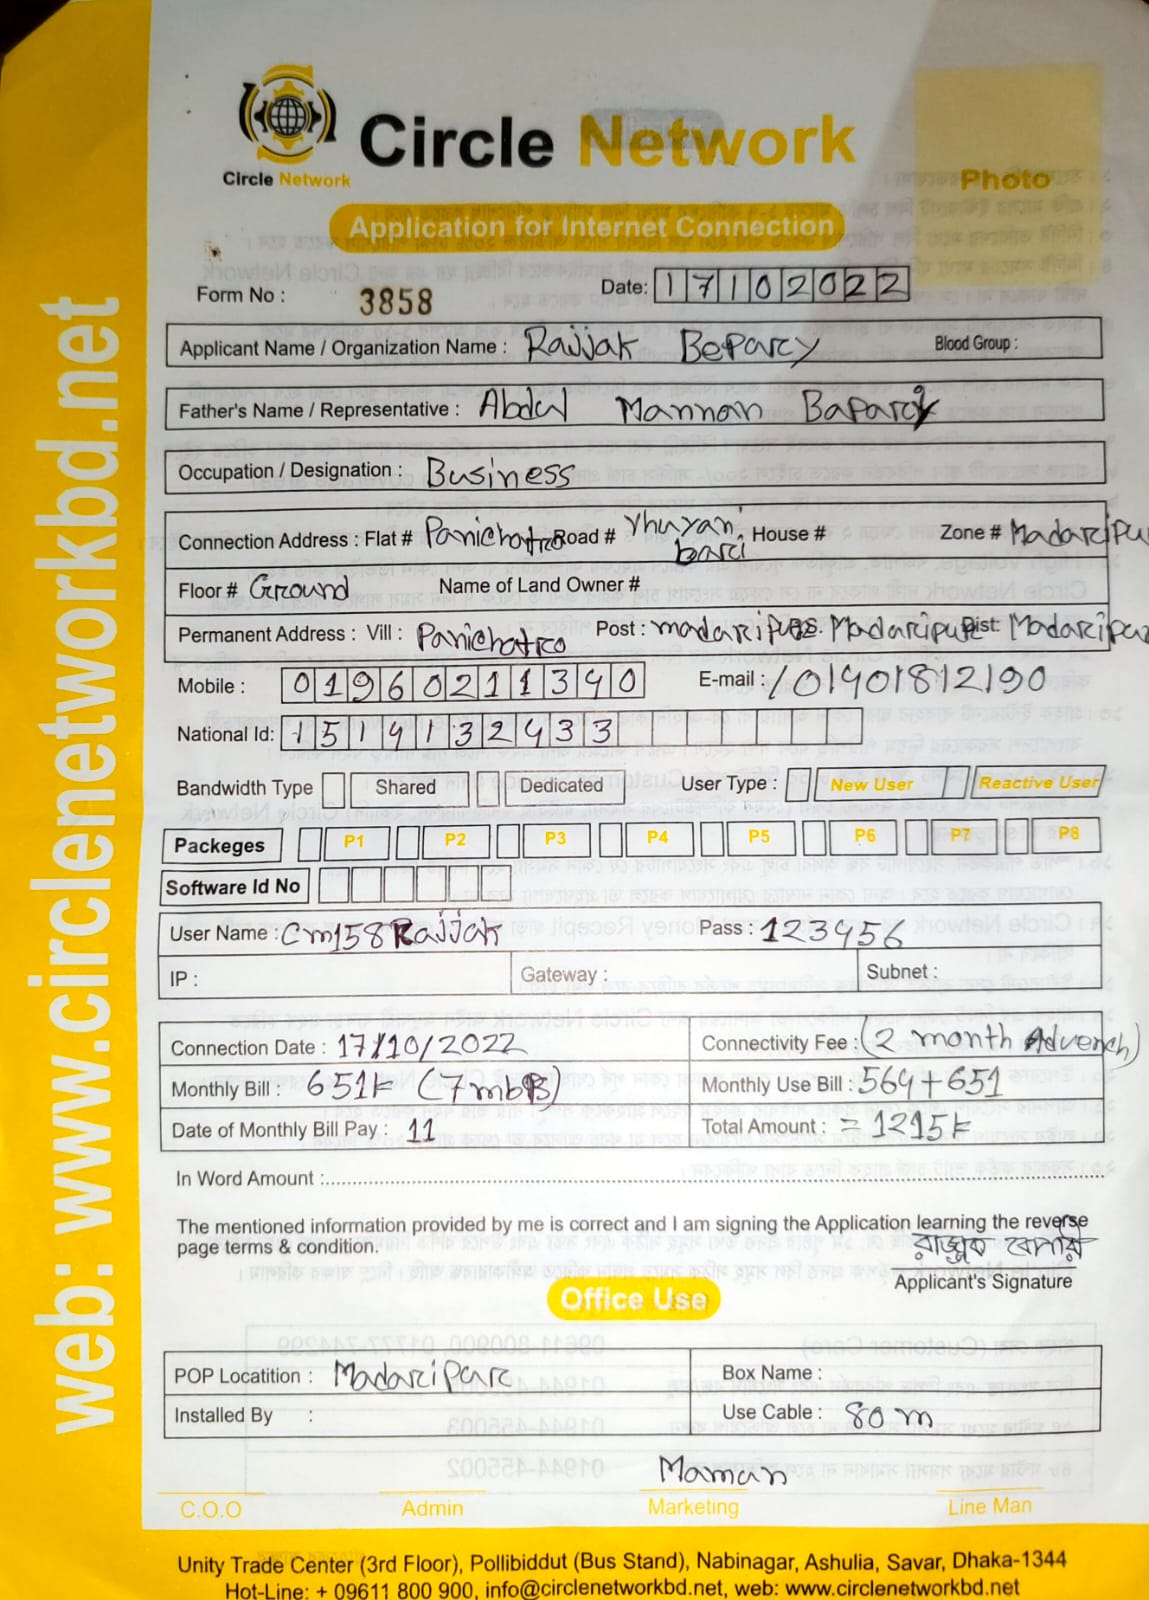 web: www.circlenetworkbd.net
Circle Network
Circle Network
Photo
Application for Internet Connection
Form No : 3858
Date: 17102022
Applicant Name / Organization Name : Rajjak Beparcy Blood Group :
Father's Name / Representative : Abdul Mannan Baparcy
Occupation / Designation : Business
Connection Address : Flat # Panichatro Road # Vhuyan barci House # Zone # Madarcipur
Floor # Ground Name of Land Owner #
Permanent Address : Vill : Panichatro Post : madarcipur P.S. Madarcipur Dist: Madarcipur
Mobile : 01960211340 E-mail : /01401812190
National Id: 1519132433
Bandwidth Type Shared Dedicated User Type : New User Reactive User
Packeges P1 P2 P3 P4 P5 P6 P7 P8
Software Id No
User Name : cm158Rajjak Pass : 123456
IP : Gateway : Subnet :
Connection Date : 17/10/2022 Connectivity Fee : (2 month Advench)
Monthly Bill : 651F (7mbB) Monthly Use Bill : 564+651
Date of Monthly Bill Pay : 11 Total Amount : = 1215F
In Word Amount :
The mentioned information provided by me is correct and I am signing the Application learning the reverse
page terms & condition.
রাজ্জাক বেপারি
Applicant's Signature
Office Use
POP Locatition : Madarcipur Box Name :
Installed By : Use Cable : 80 m
Maman
C.O.O Admin Marketing Line Man
Unity Trade Center (3rd Floor), Pollibiddut (Bus Stand), Nabinagar, Ashulia, Savar, Dhaka-1344
Hot-Line: + 09611 800 900, info@circlenetworkbd.net, web: www.circlenetworkbd.net